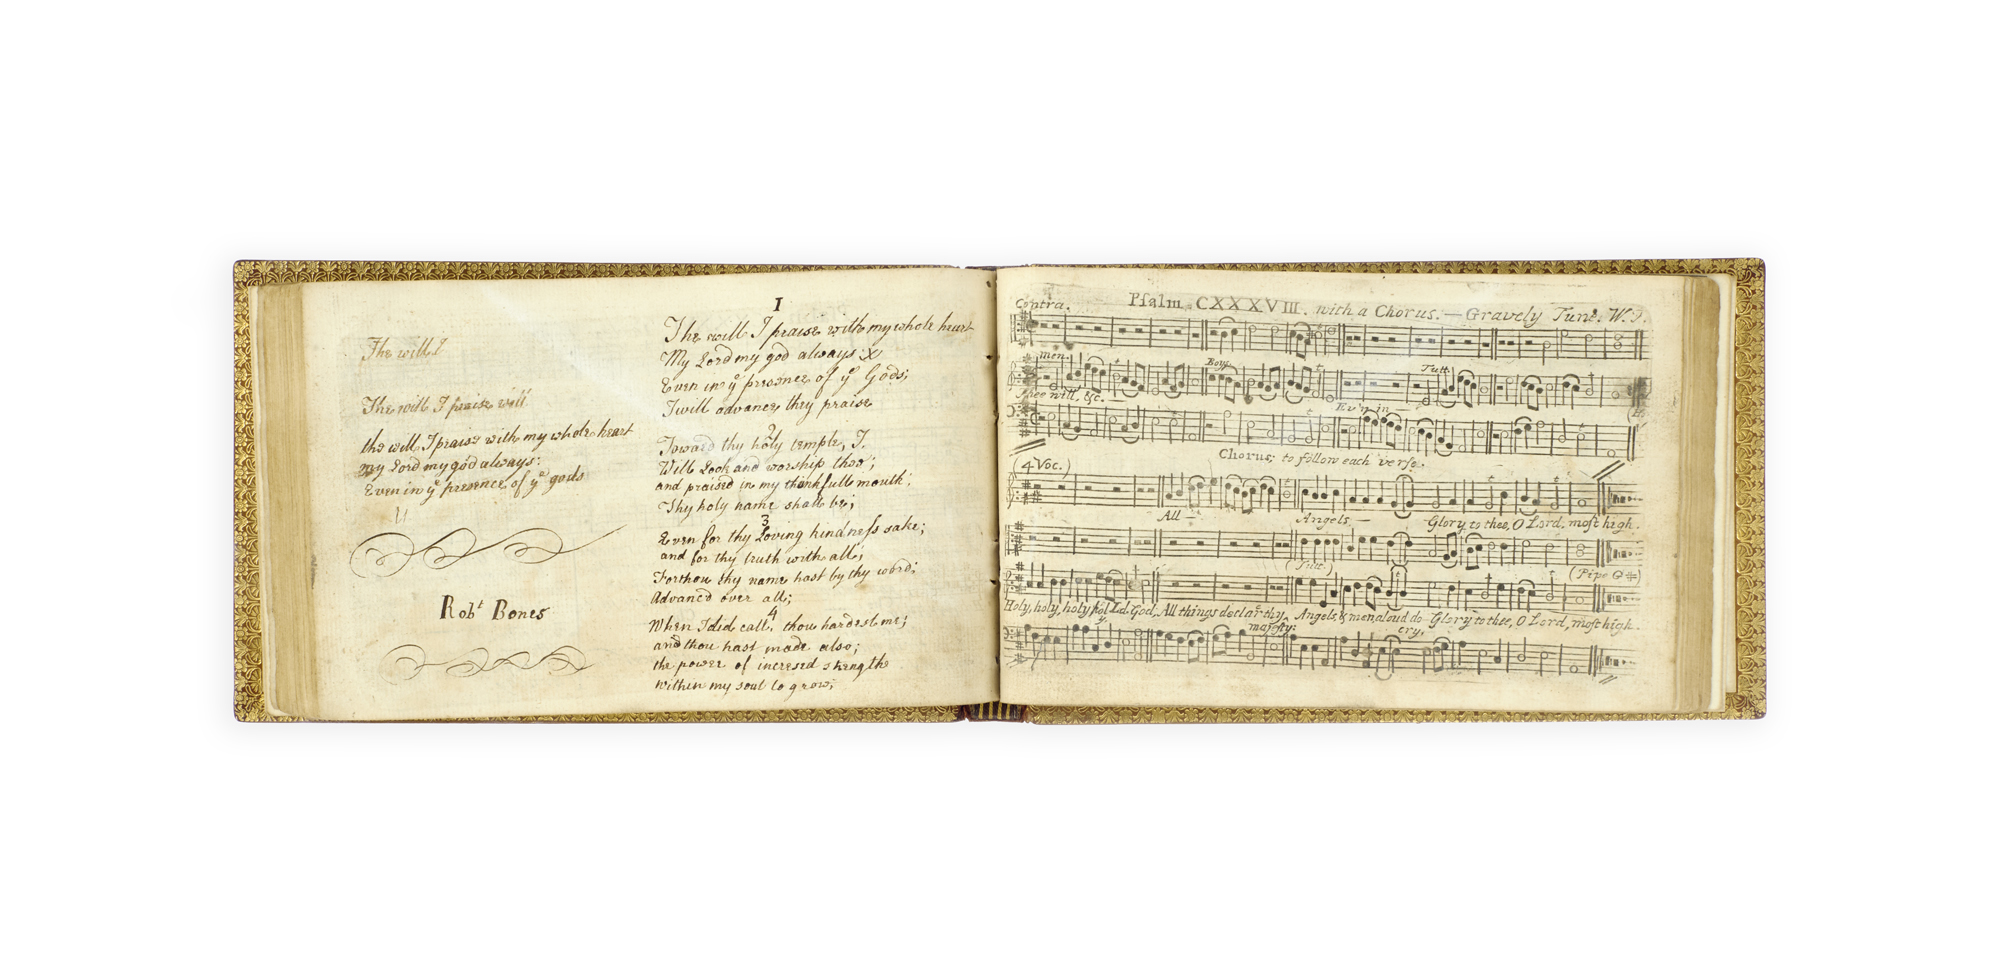 The will I
The will I praise will
the will I praise with my whole heart
my Lord my god always:
Even in yͤ presence of yͤ gods
Robᵗ Bones
1
The will I praise with my whole heart
My Lord my god always
Even in yͤ presence of yͤ Gods;
I will advance they praise
2
Toward thy holy temple, I.
Will Look and worship thee;
and praised in my thankfull mouth;
Thy holy name shall be;
3
Even for thy Loving kindness sake;
and for thy truth with all;
For thou thy name hast by thy word;
Advanc'd over all;
4
When I did call, thou hardest me;
and thou hast made also;
the power of incresed strength
within my soul to grow;
Psalm CXXXVIII. with a Chorus.—Gravely Tune. W.T.
Contra.
men.
Boys
Tutt.
Thee will, &c.—
Ev'n in—
Chorus; to follow each verse.
(4 Voc.)
All— Angels— Glory to thee, O Lord, most high.
(Tutt.)
(Pipe G#)
Holy, holy, holy Ld. God, All things declar thy Angels, & men aloud do Glory to thee, O Lord, most high.
majesty: cry,